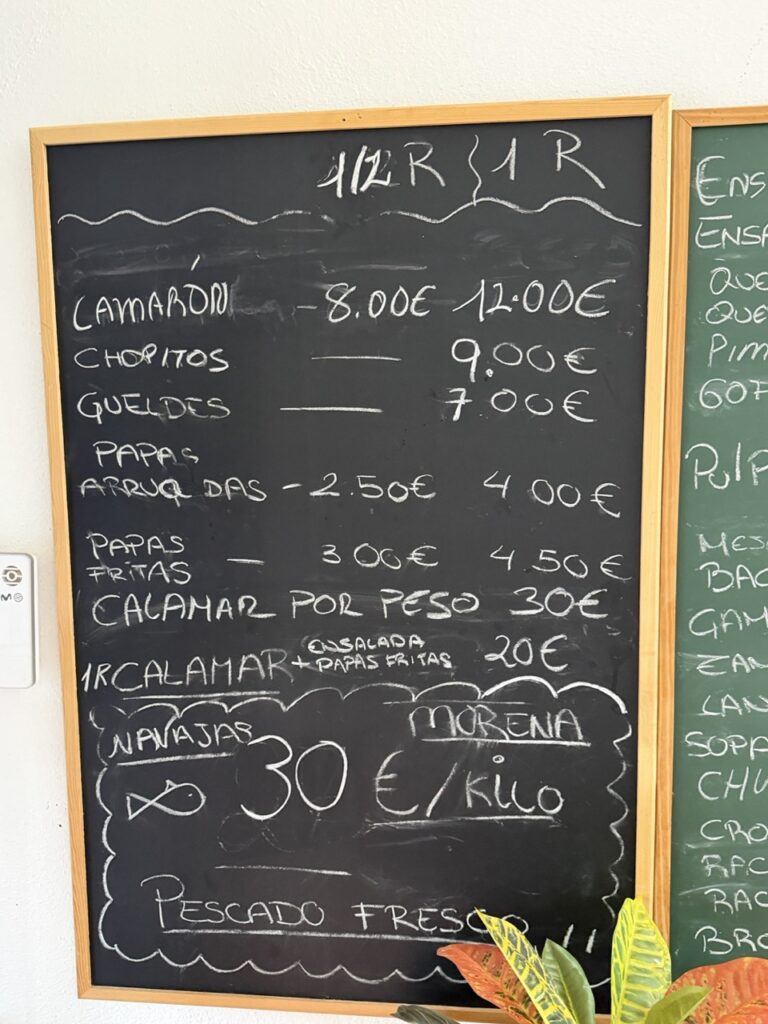 1/2 R 1 R
CAMARÓN - 8.00€ 12.00€
CHOPITOS — 9.00€
GUELDES — 7.00€
PAPAS
ARRUGADAS - 2.50€ 4 00€
PAPAS
FRITAS — 3 00€ 4 50€
CALAMAR POR PESO 30€
1R CALAMAR + ENSALADA
PAPAS FRITAS 20€
NAVAJAS MORENA
30 €/KiLO
PESCADO FRESCO !!
ENS
ENSA
QUE
QUE
PIM
GOF
PulP
MES
BAC
GAM
LAN
SOPA
CHU
CRO
RAC
RAC
BRO